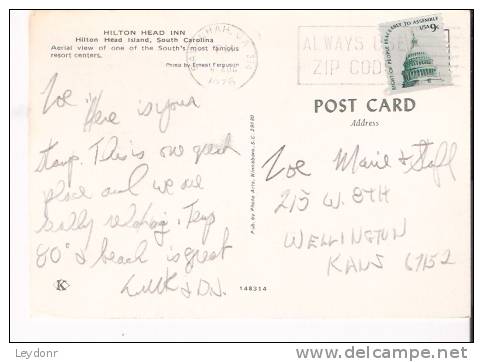 HILTON HEAD INN
Hilton Head Island, South Carolina
Aerial view of one of the South's most famous
resort centers.
Photo by Ernest Ferguson
1976
ALWAYS USE
ZIP COD
RIGHT OF PEOPLE PEACEABLY TO ASSEMBLE
USA 9c
POST CARD
Address
Zoe Here is your
stamp. This is one great
place and we are
really relaxing. Temp
80° & beach is great
Pub. by Photo Arts, Winnsboro, S.C. 29180
Zoe Marie & Staff
215 W. 8TH
WELLINGTON
KANS 67152
K
148314
Leydonr
delcampe.net